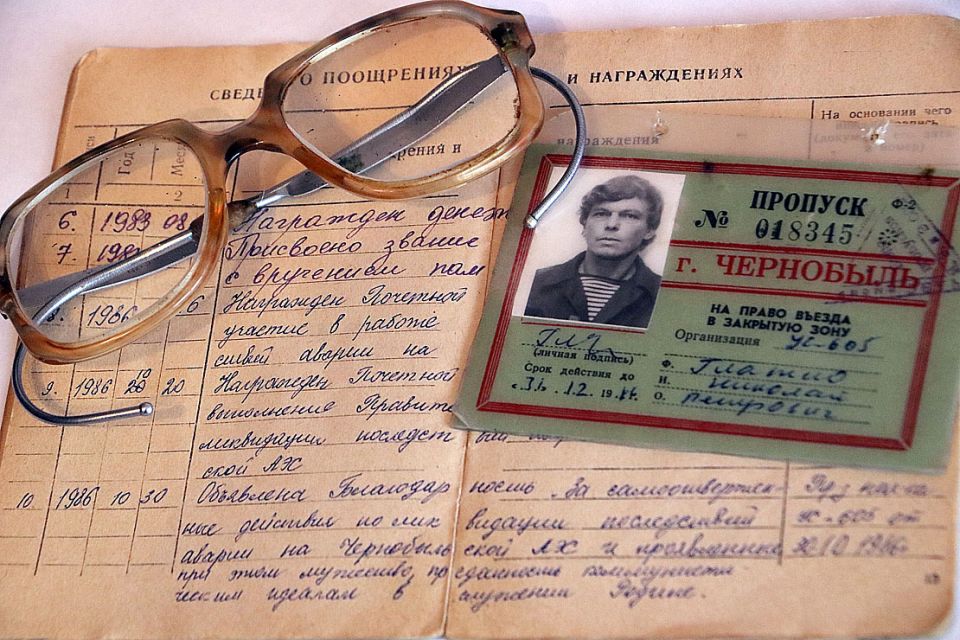 СВЕДЕ О ПООЩРЕНИЯХ И НАГРАЖДЕНИЯХ
На основании чего
награждения
рения и
Год
2
6. 1983 08 Награжден денеж
7. Присвоено звание
с вручением пам
1986 6 Награжден Почетной
участие в работе
аварии на
9. 1986 10 20 Награжден Почетной
выполнение Правите
ликвидации последст
ской АЭС
10 1986 10 30 Объявлена Благодар ность "За самоотвержен-
ные действия по лик видации последствий
аварии на Чернобыль ской АЭС и проявленные 30.10.1986г
при этом мужество, пре данность коммунисти
ческим идеалам в служении Родине.
ПРОПУСК Ф-2
№ 018345
г. ЧЕРНОБЫЛЬ
НА ПРАВО ВЪЕЗДА
В ЗАКРЫТУЮ ЗОНУ
Организация УС-605
(личная подпись)
Срок действия до
31.12.19
Ф.
И. Николай
О. Петрович